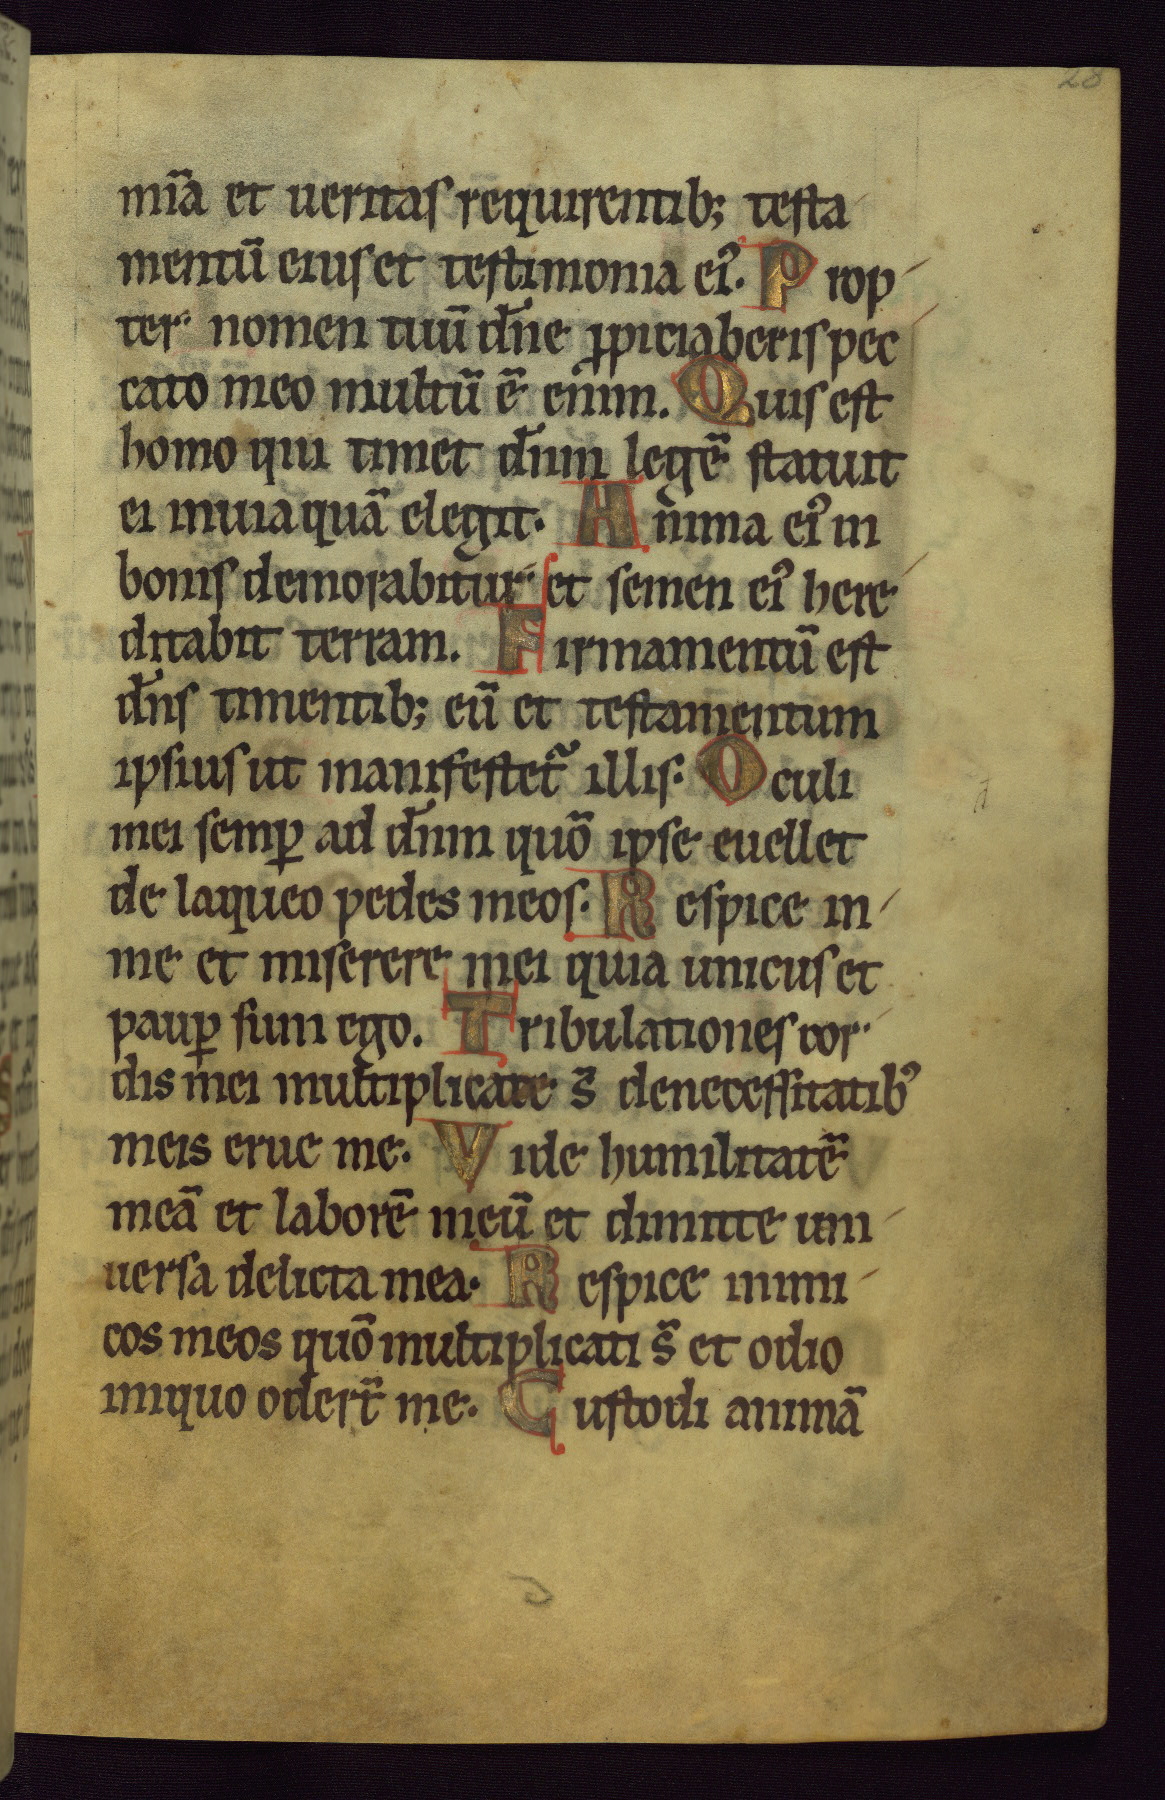 28
mia̅ et ueritas requirentib; testa
mentu̅ eius et testimonia ei᾽. Prop
ter nomen tuu̅ dn̅e ꝓpiciaberis pec
cato meo multu̅ e̅ eni̅m. Quis est
homo qui timet dn̅m lege̅ statuit
ei in uia qua̅ elegit. Anima ei᾽ in
bonis demorabitur et semen ei᾽ here
ditabit terram. Firmamentu̅ est
dn̅s timentib; eu̅ et testamentum
ipsius ut manifestet᷑ illis. Oculi
mei semꝑ ad dn̅m quo̅ ipse euellet
de laqueo pedes meos. Respice in
me et miserere mei quia unicus et
pauꝑ sum ego. Tribulationes cor
dis mei multiplicate s̅ de necessitatib᾽
meis erue me. Vide humilitate̅
mea̅ et labore̅ meu̅ et dimitte uni
uersa delicta mea. Respice inimi
cos meos quo̅ multiplicati s̅ et odio
iniquo odert̅ me. Custodi anima̅